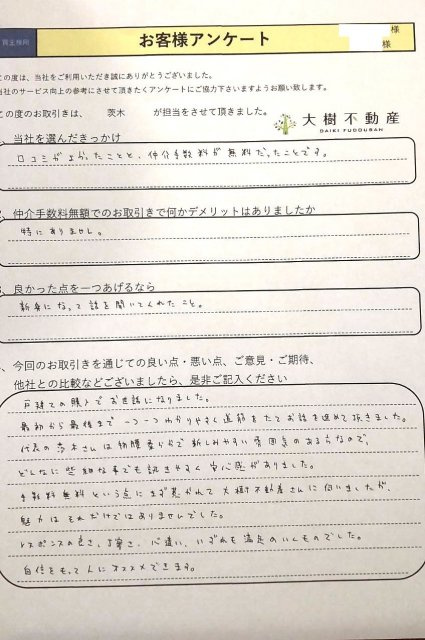 買主様用
お客様アンケート
様
様
この度は、当社をご利用いただき誠にありがとうございました。
当社のサービス向上の参考にさせて頂きたくアンケートにご協力下さいますようお願い致します。
この度のお取引きは、 茨木 が担当をさせて頂きました。
大樹不動産
DAIKI FUDOUSAN
当社を選んだきっかけ
口コミがよかったことと、仲介手数料が無料だったことです。
仲介手数料無額でのお取引きで何かデメリットはありましたか
特にありません。
良かった点を一つあげるなら
親身になって話を聞いてくれたこと。
今回のお取引きを通じての良い点・悪い点、ご意見・ご期待、
他社との比較などございましたら、是非ご記入ください
戸建ての購入でお世話になりました。
最初から最後まで一つ一つわかりやすく道筋をたてお話を進めて頂きました。
代表の茨木さんは物腰柔らかで親しみやすい雰囲気のある方なので、
どんなに些細な事でも訊きやすく安心感がありました。
手数料無料という点にまず惹かれて大樹不動産さんに伺いましたが、
魅力はそれだけではありませんでした。
レスポンスの良さ、丁寧さ、心遣い、いずれも満足のいくものでした。
自信をもって人にオススメできます。